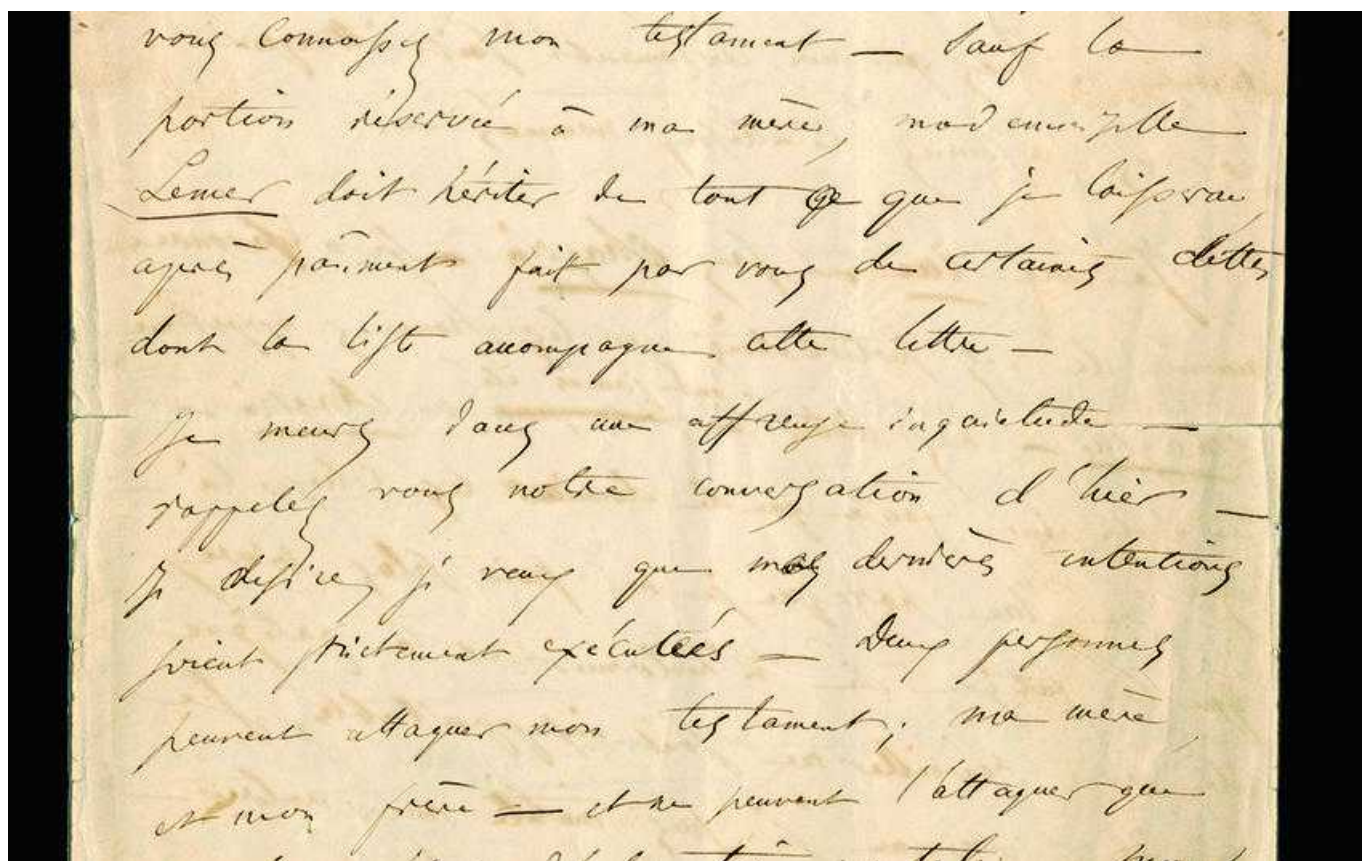 vous connaissez mon testament — sauf la
portion réservée à ma mère, mademoiselle
Lemer doit hériter de tout ce que je laisserai,
après paiment fait par vous de certaines dettes
dont la liste accompagne cette lettre —
Je meurs dans une affreuse inquiétude —
rappelez vous notre conversation d'hier —
Je désire, je veux que mes dernières intentions
soient strictement exécutées — Deux personnes
peuvent attaquer mon testament; ma mère,
et mon frère — et ne peuvent l'attaquer que